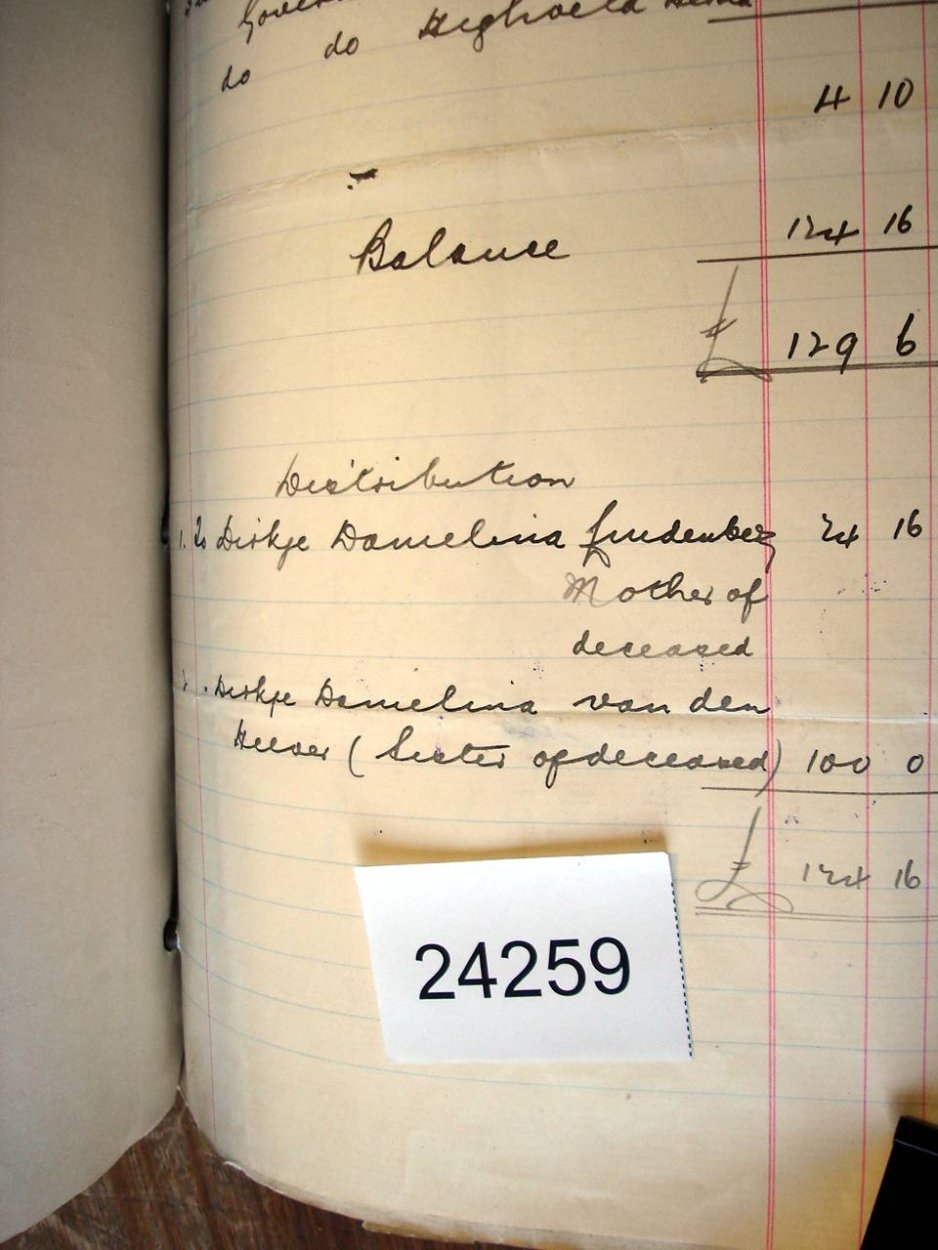 do do Highveld
4 10
Balance 124 16
£ 129 6
Distribution
1. To Dirkje Damelina 24 16
Mother of
deceased
Dirkje Damelina van den
Heever (Sister of deceased) 100 0
£ 124 16
24259